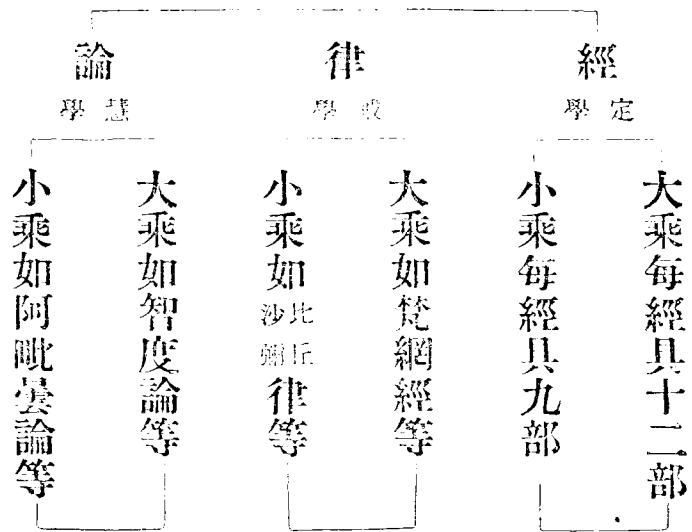 經
定學
大乘每經具十二部
小乘每經具九部
律
戒學
大乘如梵網經等
小乘如比丘沙彌律等
論
慧學
大乘如智度論等
小乘如阿毗曇論等